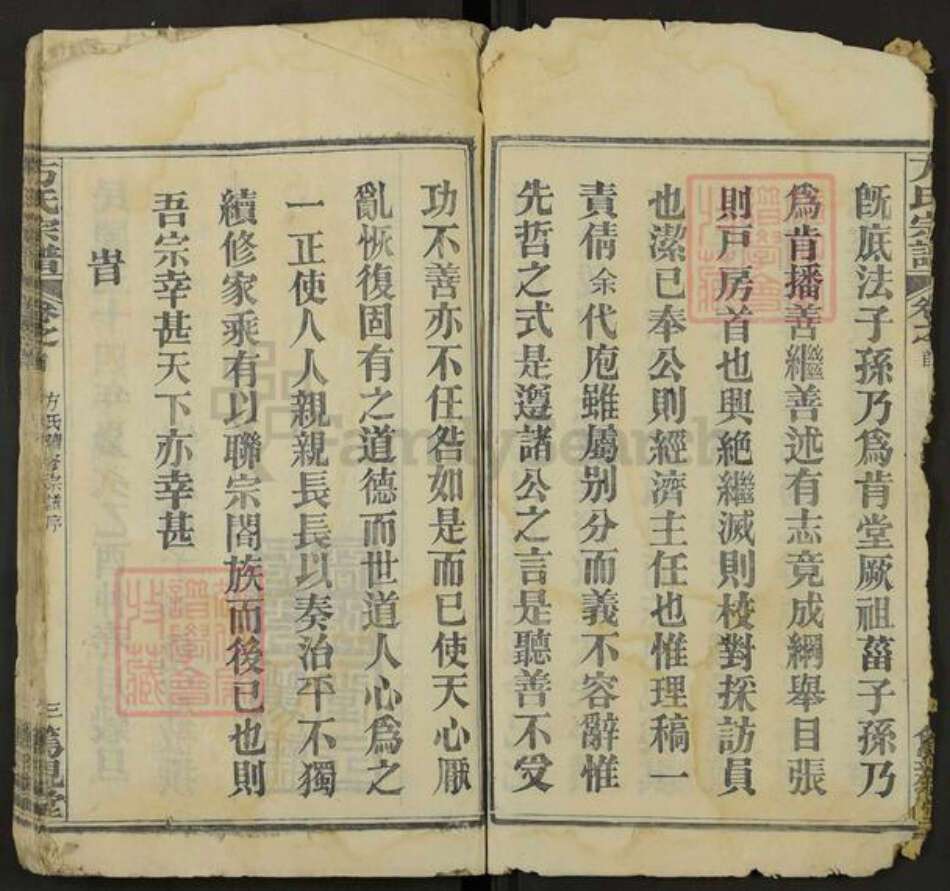 既底法子孫乃爲肯堂厥祖菑子孫乃
爲肯播善繼善述有志竟成綱舉目張
則戸房首也興絶繼滅則校對採訪員
也潔已奉公則經濟主任也惟理稿一
責倩余代庖雖屬别分而義不容辭惟
先哲之式是遵諸公之言是聽善不受
功不善亦不任咎如是而已使天心厭
亂恢復固有之道德而世道人心爲之
一正使人人親親長長以奏治平不獨
續修家乘有以聯宗閤族而後已也則
吾宗幸甚天下亦幸甚
旹
方氏宗譜
卷之首
方氏續修宗譜序
三
FamilySearch